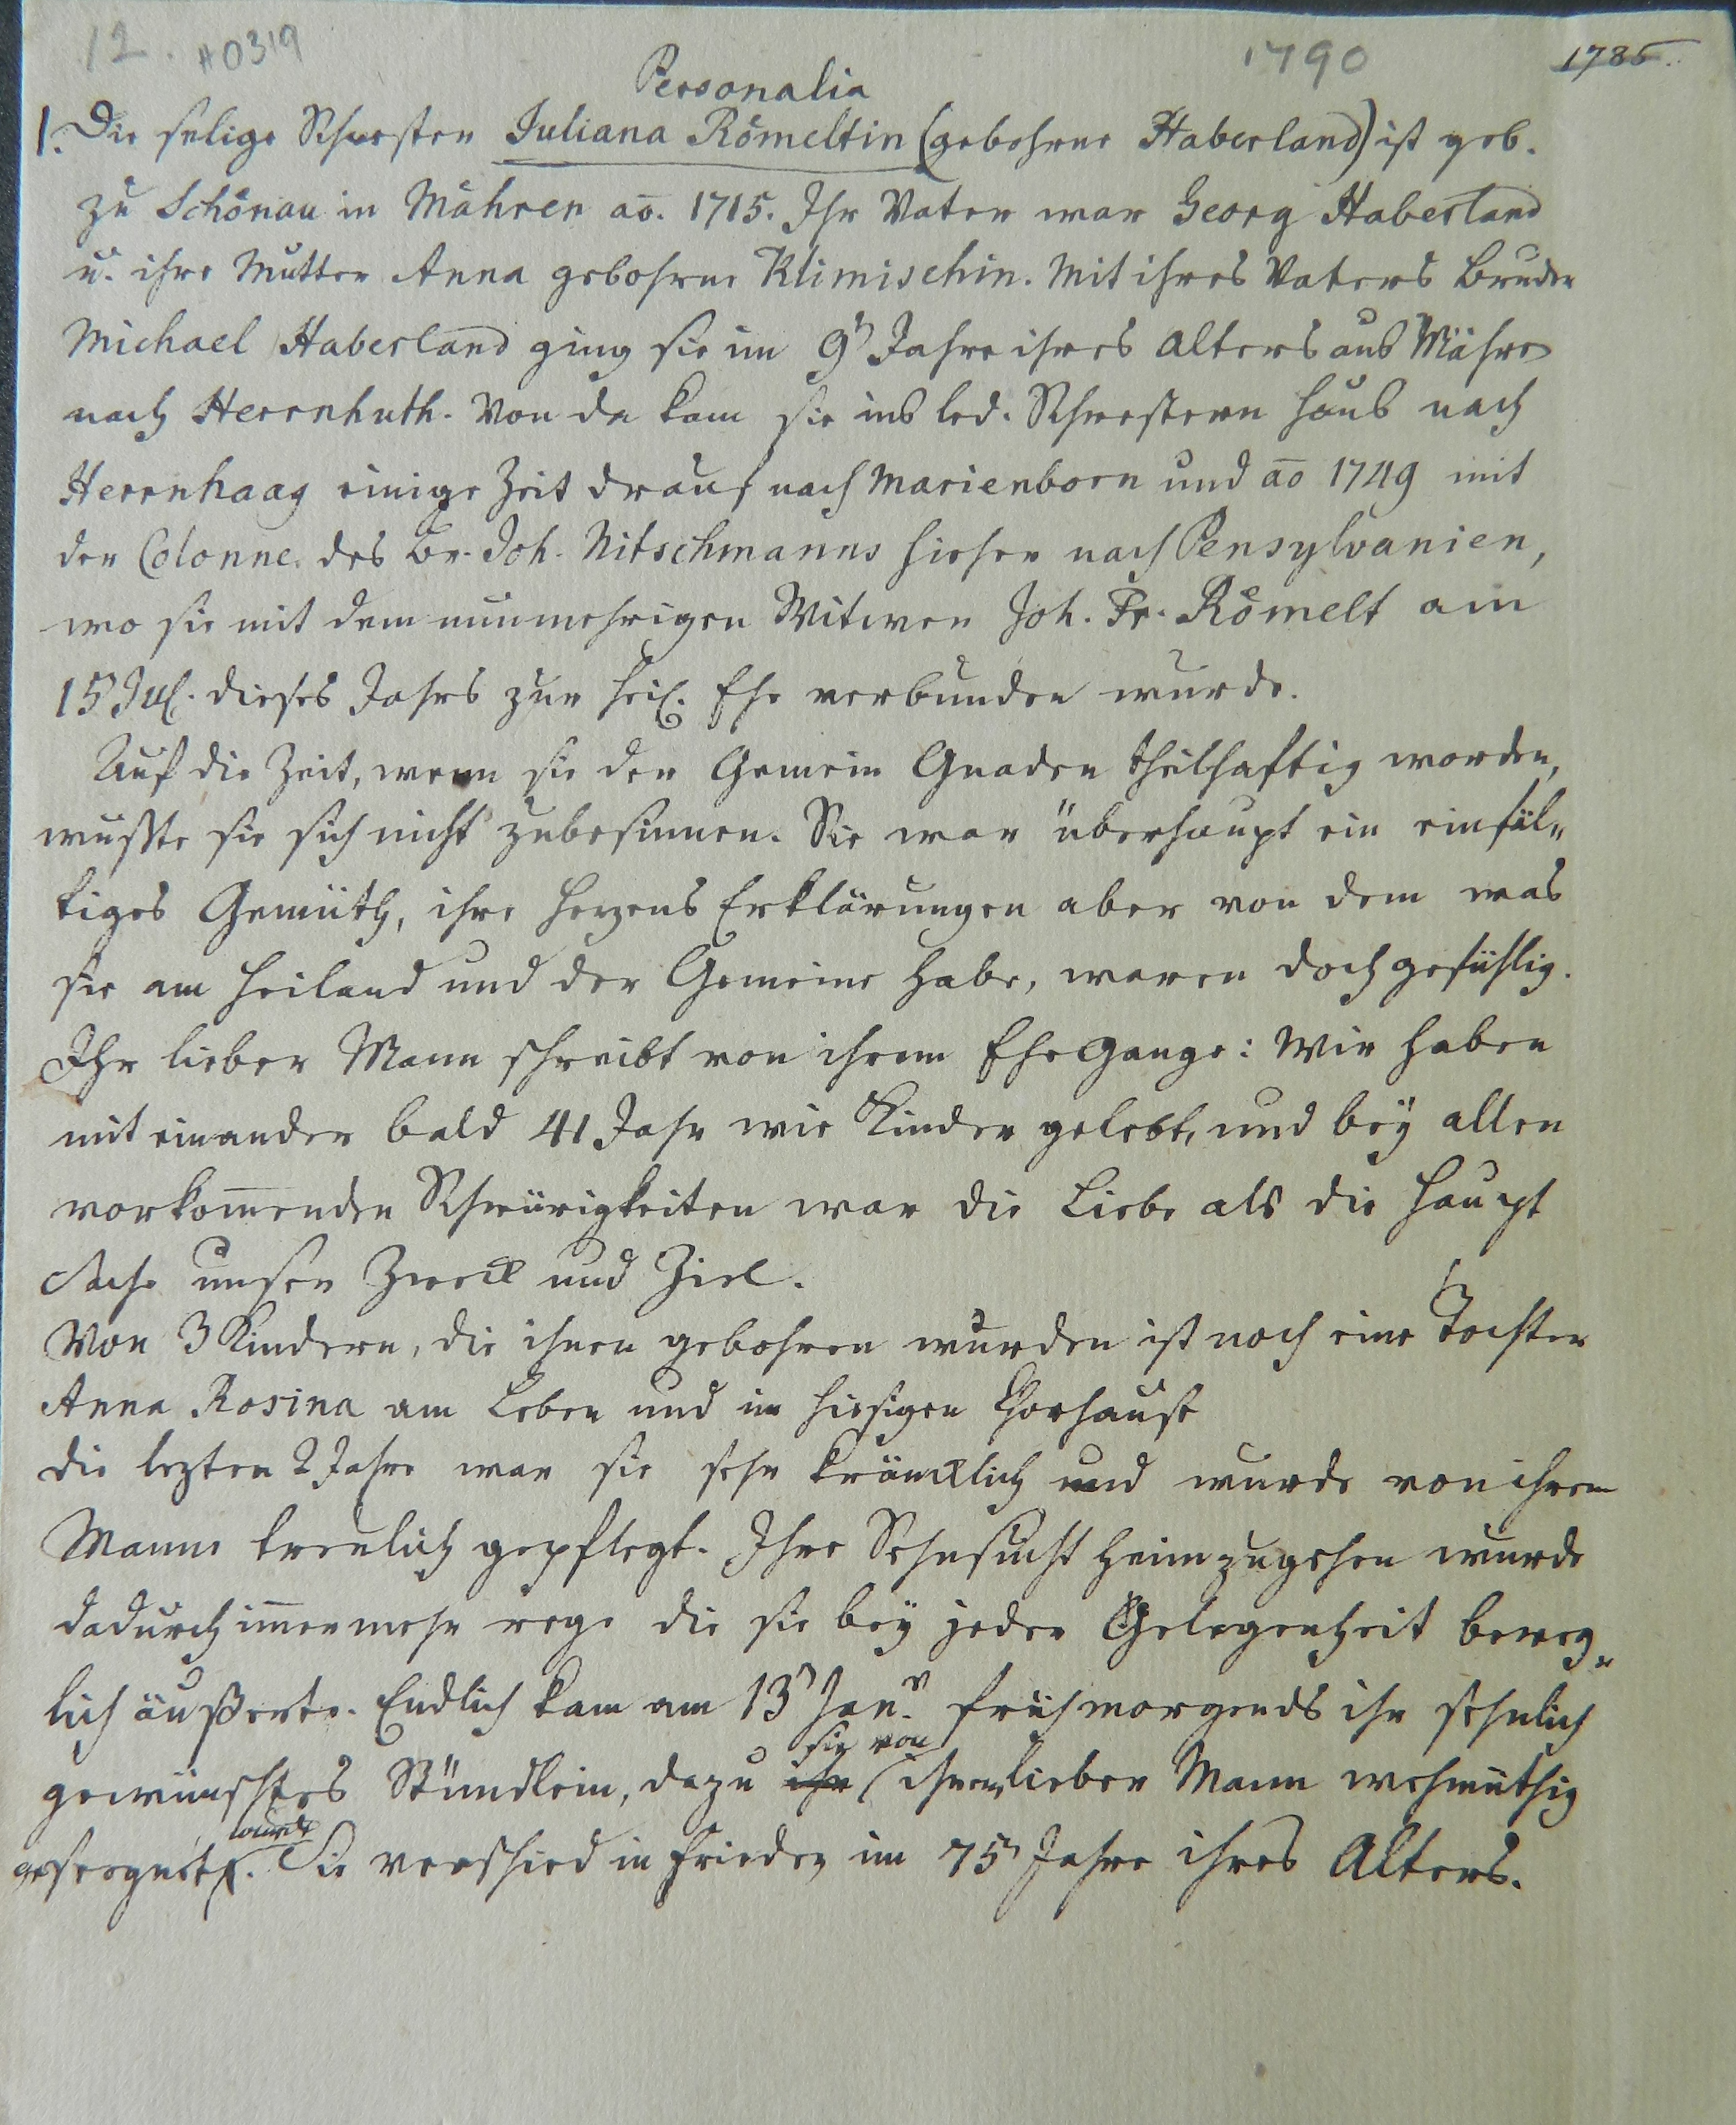 12. #0319 1790 1785.
Personalia
1. Die selige Schwester Juliana Römeltin (gebohrne Haberland) ist geb.
zu Schönau in Mähren ao. 1715. Ihr Vater war Georg Haberland
u. ihre Mutter Anna gebohrne Klimischin. Mit ihres Vaters Bruder
Michael Haberland ging sie im 9n Jahre ihres Alters aus Mähren
nach Herrnhuth. Von da kam sie ins led. Schwestern Haus nach
Herrnhaag einige Zeit drauf nach Marienborn und ao 1749 mit
der Colonne des Br. Joh. Nitschmanns hieher nach Pensylvanien,
wo sie mit dem nunmehrigen Witwer Joh. Fr. Römelt am
15n Jul. dieses Jahrs zur heil. Ehe verbunden wurde.
Auf die Zeit, wenn sie der Gemein Gnaden theilhaftig worden,
wußte sie sich nicht zubesinnen. Sie war überhaupt ein einfäl„
tiges Gemüth, ihre Herzens Erklärungen aber von dem was
sie am Heiland und der Gemeine habe, waren doch gefühlig.
Ihr lieber Mann schreibt von ihrem Ehe Gange: Wir haben
mit einander bald 41 Jahr wie Kinder gelebt, und bey allen
vorkom̅enden Schwürigkeiten war die Liebe als die Haupt
Sache unser Zweck und Ziel.
Von 3 Kindern, die ihnen gebohren wurden ist noch eine Tochter
Anna Rosina am Leben und im hiesigen Chorhause
die lezten 2 Jahre war sie sehr kräncklich und wurde von ihrem
Manne treulich gepflegt. Ihre Sehnsucht heimzugehen wurde
dadurch im̅er mehr rege die sie bey jeder Gelegenheit beweg„
lich äußerte. Endlich kam am 13n Janr. früh morgends ihr sehnlich
gewünschtes Stündlein, dazu ihr sie von ihrem lieben Mann wehmüthig
gesegnet wurde. Sie verschied in Frieden im 75n Jahre ihres Alters.